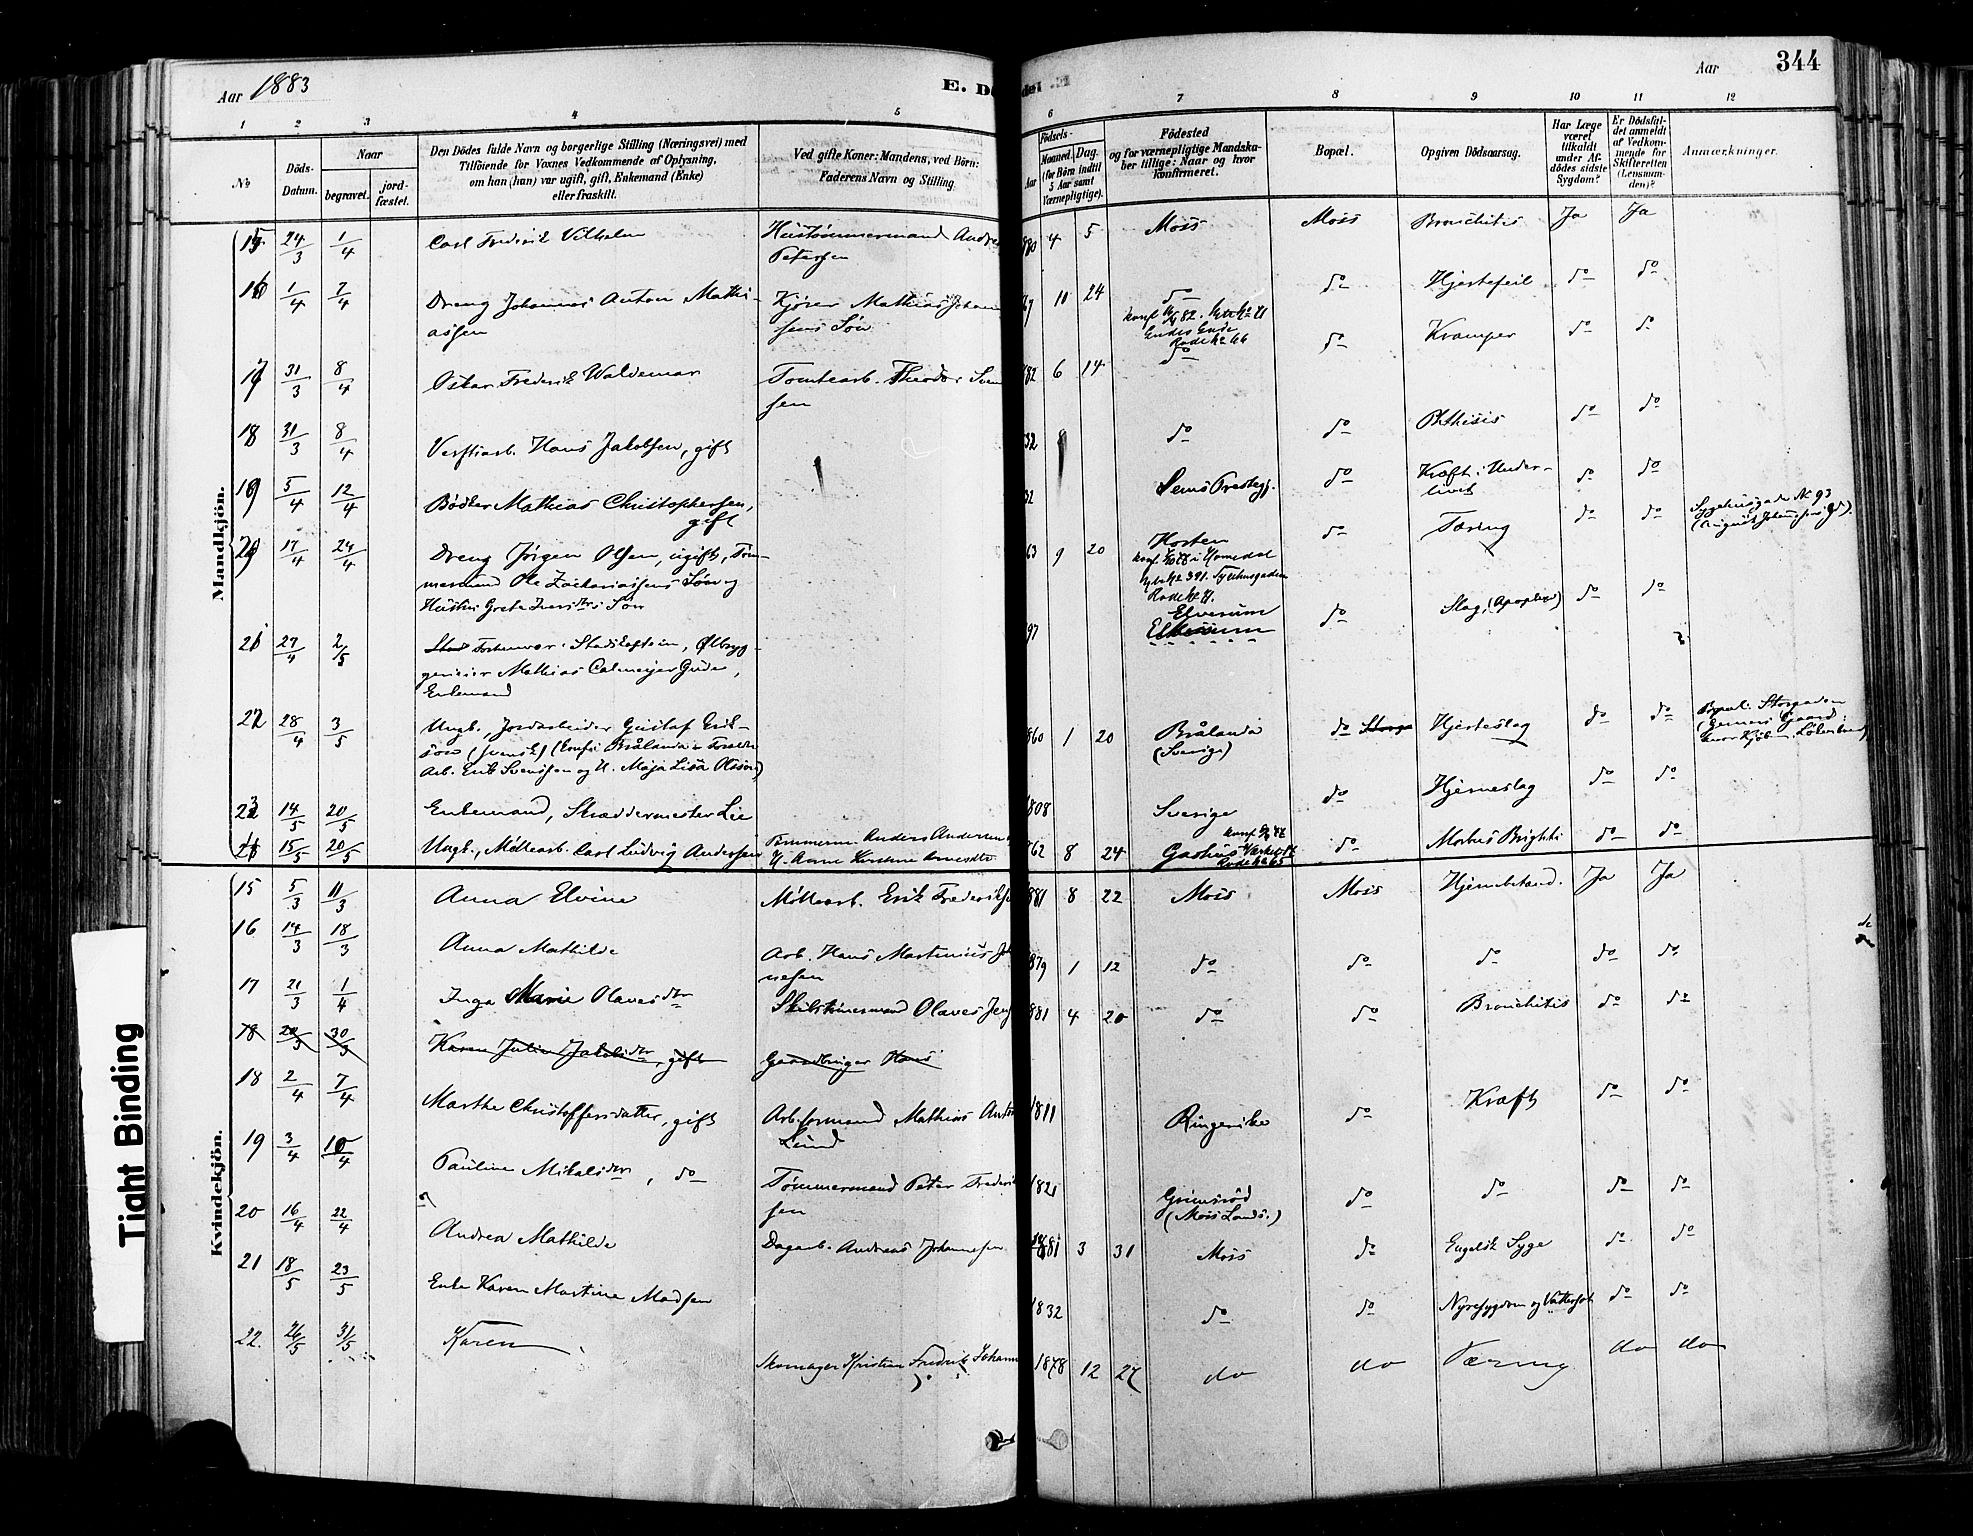 Aar 1883
E. Dö
de .E
Aar 344
1 2 3 4 5 6 7 8 9 10 11 12
No
Döds-
Datum.
Naar
begravet.
jord-
fæstet.
Den Dödes fulde Navn og borgerlige Stilling (Næringsvei) med
Tilföiende for Voxnes Vedkommende af Oplysning,
om han (hun) var ugift, gift, Enkemand (Enke)
eller fraskilt.
Ved gifte Koner: Mandens, ved Börn:
Faderens Navn og Stilling.
Födsels-
Aar
Maaned.
Dag.
(for Börn indtil
5 Aar samt
Værnepligtige).
Födested
og for værnepligtige Mandska-
ber tillige: Naar og hvor
konfirmeret.
Bopæl.
Opgiven Dödsaarsag.
Har Læge
været
tilkaldt
under Af-
dödes sidste
Sygdom?
Er Dödsfal-
det anmeldt
af Vedkom-
mende for
Skifteretten
(Lensman-
den)?
Anmærkninger.
Mandkjön.
15 24/3 1/4 Carl Frederik Vilhelm Hustømmermand Andre
Petersen
880 4 5 Moss Moss Bronchitis Ja Ja
16 1/4 7/4 Dreng Johannes Anton Mathi-
assen
Kjører Mathias Johan
sens Søn
67 10 24 do do Hjertefeil do do
17 31/3 8/4 Oskar Frederik Waldemar Tomtearb. Theodor Sven
sen
82 6 14 do do Kramper do do
18 31/3 8/4 Verftsarb. Hans Jakobsen, gift
32 do do Phthisis do do
19 5/4 12/4 Bødker Mathias Christophersen,
gift
32 Sems Prestegj. do Kræft i Under-
livet do do
20 17/4 24/4 Dreng Jørgen Olsen, ugift, Tøm-
mermand Ole Zachariassens Søn og
Hustru Grete Iversdtrs Søn
63 9 20 Horten
do Tæring do do
Sygehusgade No 93
21 27/4 2/5
Mathias Calmeyer Gude,
Enkemand
97 Elverum
do Slag, (Apoplexi) do do
22 28/4 3/5 Ungk., Jordarbeider Gustaf Erik-
son (svensk)
Arb. Erik Svensson og H. Maja Lisa Olsson)
860 1 20 Brålanda
(Sverige)
do Hjerteslag do do
23 14/5 20/5 Enkemand, Skræddermester Lie
1808 Sverige do Hjerneslag do do
15/5 20/5 Ungk., Møllearb. Carl Ludvig Andersen Tømmerm. Anders Andersen
862 8 24 do Morbus Brightii do do
Kvindekjön.
15 5/3 11/3 Anna Elvine Møllearb. Erik Frederiks
881 8 22 Moss Moss Hjernebetænd. Ja Ja
16 14/3 18/3 Anna Mathilde Arb. Hans Martinius Jo
nesen
879 1 12 do do do do do
17 21/3 1/4 Inga Marie Olavesdtr Skibstømmermand Olaves Jens
881 4 20 do do Bronchitis do do
18 30/3 Karen Julie Jakobsdtr, gift Gaardbruger Hans
18 2/4 7/4 Marthe Christoffersdatter, gift Arb.formand Mathias Anton
Lund
1811 Ringerike do Kræft do do
19 3/4 10/4 Pauline Mikalsdtr, do Tømmermand Peter Frederik
sen
1821 Grimsrød
(Moss Lands.) do do do do
20 16/4 22/4 Andrea Mathilde Dagarb. Andreas Johannesen
1881 3 31 Moss do Engelsk Syge do do
21 18/5 23/5 Enke Karen Martine Madsen
1832 do do Nyresygdom og Vattersot do do
22. 26/5 31/5 Karen Skomager Kristian Fredrik Johann
1878 12 27 do do Tæring do do
Tight Binding